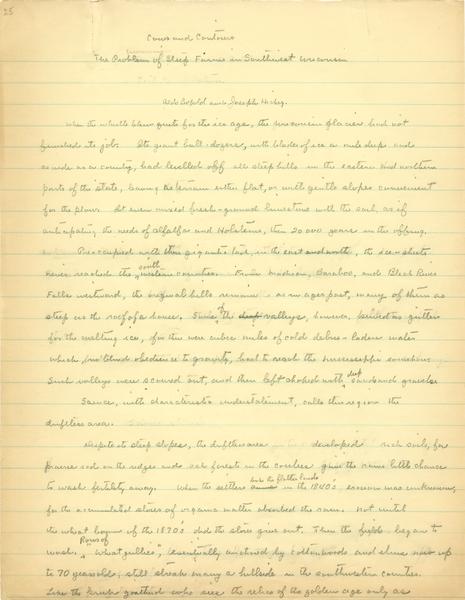 25
Cows and Contours
The Problem of Steep Farms in Southwest Wisconsin
Aldo Leopold and Joseph Hickey.
When the whistle blew quits for the ice age, the Wisconsin glacier had not
finished its job. Its giant bull-dozers, with blades of ice a mile deep and
as wide as a county, had levelled off all steep hills in the eastern and northern
parts of the state, leaving its terrain either flat, or with gentle slopes convenient
for the plow. It even mixed fresh-ground limestone with the soil, as if
anticipating the needs of alfalfas and Holsteins, then 20 000 years in the offing.
Preoccupied with this gigantic task, in the east and north, the ice-sheets
never reached the southwestern counties. From Madison, Baraboo, and Black River
Falls westward, the original hills remain as in ages past, many of them as
steep as the roof of a house. Some of the valleys, however, served as gutters
for the melting ice, for there were cubic miles of cold debris-laden water
which, in blind obedience to gravity, had to reach the Mississippi somehow.
Such valleys were scoured out, and then left choked with deep sands and gravels.
Science, with characteristic understatement, calls this region the
driftless area.
Despite its steep slopes, the driftless area developed rich soils, for
prairie sod on the ridges and oak forests in the coulees gave the rains little chance
to wash fertility away. When the settlers broke the flatter lands in the 1840's, erosion was unknown,
for the accumulated stores of organic matter absorbed the rain. Not until
the wheat boom of the 1870's did the store give out. Then the fields began to
wash. Rows of "wheat gullies", eventually anchored by cottonwoods and elms now up
to 70 years old, still streak many a hillside in the southwestern counties.
Like the Greek goatherd who sees the relics of the golden age only as